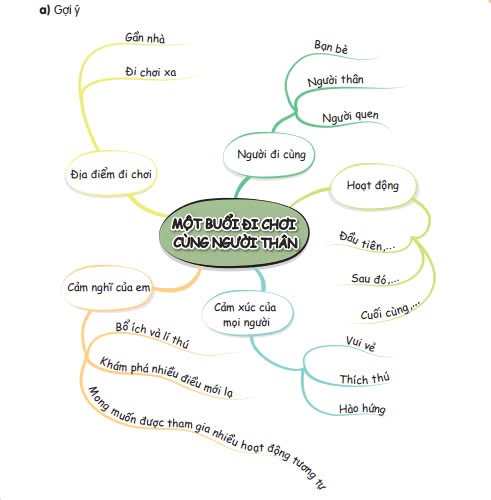 a) Gợi ý
Gần nhà
Đi chơi xa
Địa điểm đi chơi
Bạn bè
Người thân
Người quen
Người đi cùng
Hoạt động
Đầu tiên,...
Sau đó,...
Cuối cùng,...
MỘT BUỔI ĐI CHƠI
CÙNG NGƯỜI THÂN
Cảm nghĩ của em
Bổ ích và lí thú
Khám phá nhiều điều mới lạ
Mong muốn được tham gia nhiều hoạt động tương tự
Cảm xúc của
mọi người
Vui vẻ
Thích thú
Hào hứng